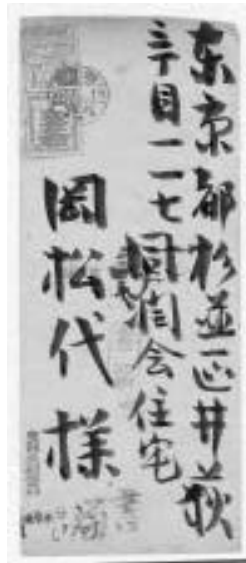 东京都杉並区井荻
三丁目一一七
同潤会住宅
岡松代様